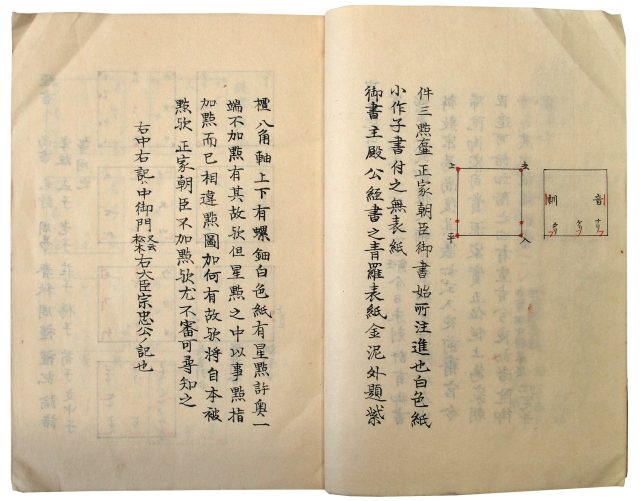 音
訓
上
去
平
入
件三點蓋正家朝臣御書始所注進也白色紙
小作子書付之無表紙
御書主殿公經書之青羅表紙金泥外題紫
檀八角軸上下有螺鈿白色紙有星點許奧一
端不加點有其故歟但星點之中以事點指
加點而已相違點圖如何有故歟將自本被
點歟正家朝臣不加點歟尤不審可尋知之
右中右記中御門又云松木右大臣宗忠公ノ記也